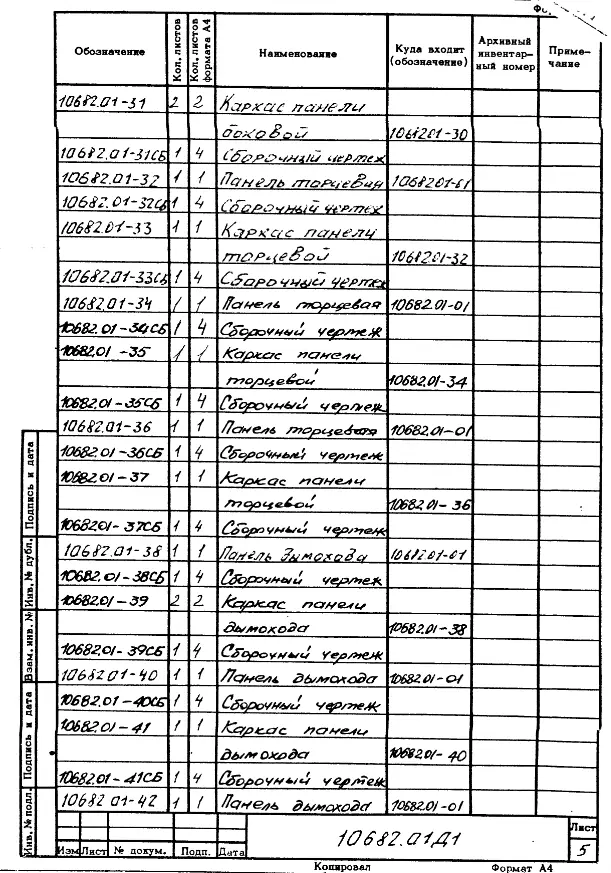 Обозначение Кол. листов Кол. листов формата А4 Наименование Куда входит (обозначение) Архивный инвентарный номер Примечание
10682.01-31 2 2 Каркас панели
боковой 10682.01-30
10682.01-31СБ 1 4 Сборочный чертеж
10682.01-32 1 1 Панель торцевая 10682.01-01
10682.01-32СБ 1 4 Сборочный чертеж
10682.01-33 1 1 Каркас панели
торцевой 10682.01-32
10682.01-33СБ 1 4 Сборочный чертеж
10682.01-34 1 1 Панель торцевая 10682.01-01
10682.01-34СБ 1 4 Сборочный чертеж
10682.01-35 1 1 Каркас панели
торцевой 10682.01-34
10682.01-35СБ 1 4 Сборочный чертеж
10682.01-36 1 1 Панель торцевая 10682.01-01
10682.01-36СБ 1 4 Сборочный чертеж
10682.01-37 1 1 Каркас панели
торцевой 10682.01-36
10682.01-37СБ 1 4 Сборочный чертеж
10682.01-38 1 1 Панель дымохода 10682.01-01
10682.01-38СБ 1 4 Сборочный чертеж
10682.01-39 2 2 Каркас панели
дымохода 10682.01-38
10682.01-39СБ 1 4 Сборочный чертеж
10682.01-40 1 1 Панель дымохода 10682.01-01
10682.01-40СБ 1 4 Сборочный чертеж
10682.01-41 1 1 Каркас панели
дымохода 10682.01-40
10682.01-41СБ 1 4 Сборочный чертеж
10682.01-42 1 1 Панель дымохода 10682.01-01
Подпись и дата
Инв. № дубл.
Взам. инв. №
Подпись и дата
Инв. № подл.
Изм Лист № докум. Подп. Дата
10682.01Д1
Лист
5
Копировал Формат А4